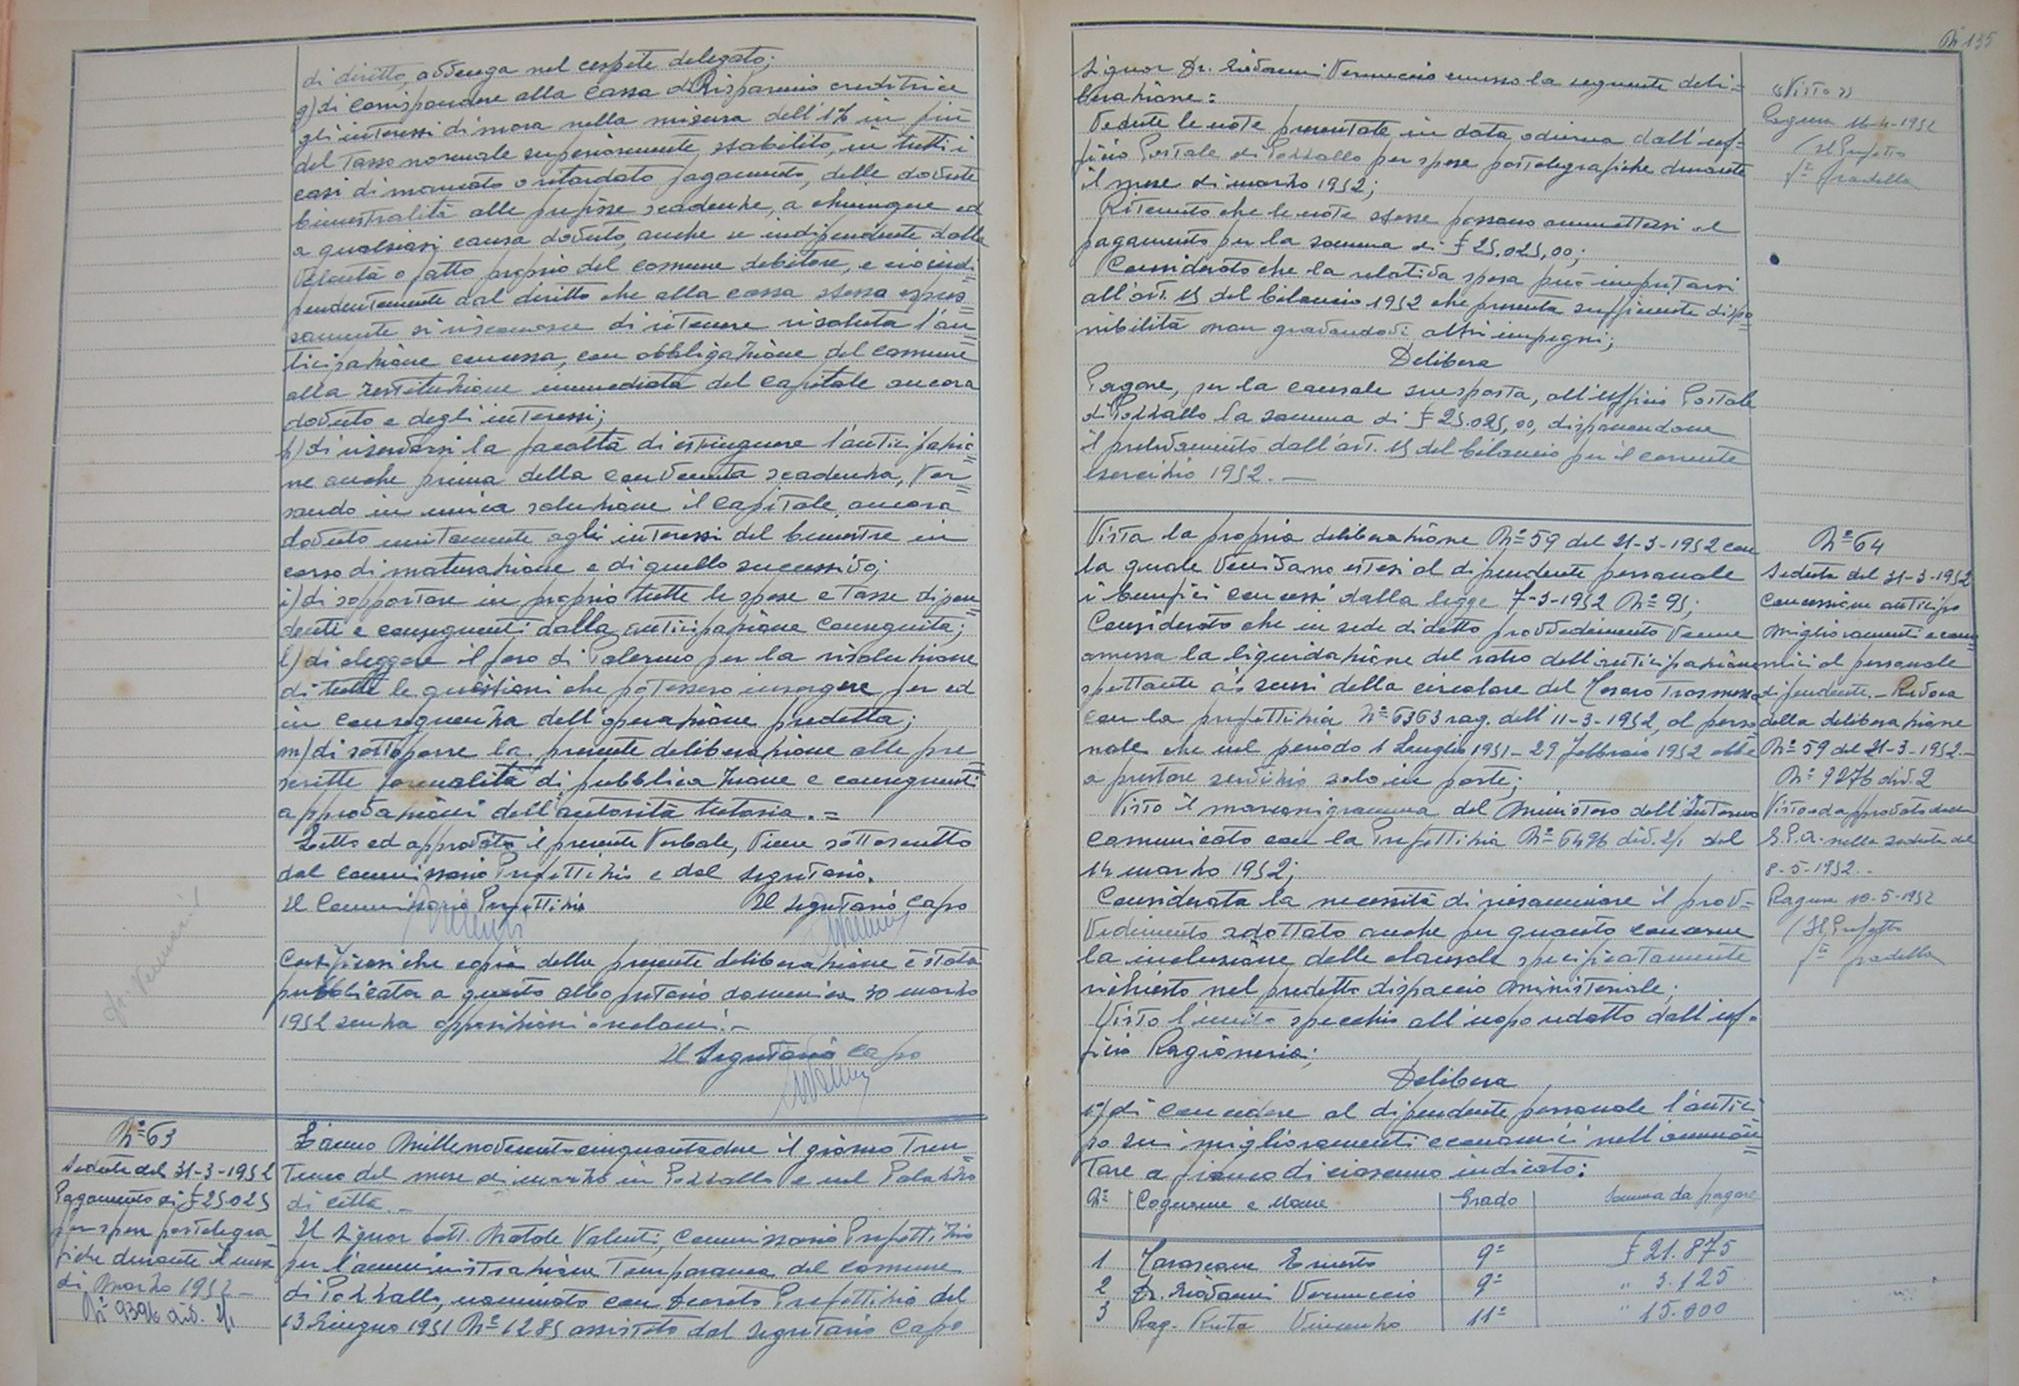 di diritto, avvenga nel cespite delegato;
g) di corrispondere alla Cassa di Risparmio creditrice
gli interessi di mora nella misura dell'1% in più
del tasso normale superiormente stabilito, in tutti i
casi di mancato o ritardato pagamento, delle dovute
bimestralità alle prefisse scadenze, a chiunque ed
a qualsiasi causa dovuto, anche se indipendente dalla
volontà o fatto proprio del comune debitore, e ciò indi=
pendentemente dal diritto che alla cassa stessa espres=
samente si riconosce di ritenere risoluta l'an=
ticipazione concessa, con obbligazione del comune
alla restituzione immediata del capitale ancora
dovuto e degli interessi;
h) di riservarsi la facoltà di estinguere l'anticipazio=
ne anche prima della convenuta scadenza, ver=
sando in unica soluzione il capitale ancora
dovuto unitamente agli interessi del bimestre in
corso di maturazione e di quello successivo;
i) di sopportare in proprio tutte le spese e tasse dipen=
denti e conseguenti dalla anticipazione conseguita;
l) di eleggere il foro di Palermo per la risoluzione
di tutte le questioni che potessero insorgere per ed
in conseguenza dell'operazione predetta;
m) di sottoporre la presente deliberazione alle pre
scritte formalità di pubblicazione e conseguenti
approvazioni dell'autorità tutoria. =
Letto ed approvato il presente Verbale, viene sottoscritto
dal Commissario Prefettizio e dal Segretario.
Il Commissario Prefettizio Il Segretario Capo
Certificasi che copia della presente deliberazione è stata
pubblicata a questo albo pretorio domenica 30 marzo
1952 senza opposizioni o reclami. -
Il Segretario Capo
N° 63
Seduta del 31-3-1952
Pagamento di £ 25.025
per spese postelegra
fiche durante il mese
di Marzo 1952 -
N° 9396 div. 2/1
L'anno Millenovecentocinquantadue il giorno Tren=
tuno del mese di marzo in Pozzallo e nel Palazzo
di città. -
Il Signor Dott. Natale Valenti, Commissario Prefettizio
per l'amministrazione Temporanea del comune
di Pozzallo, nominato con Decreto Prefettizio del
13 Giugno 1951 N° 1285 assistito dal Segretario Capo
N° 135
Signor Dr. Giovanni Vernuccio emesso la seguente deli=
berazione:
Vedute le note presentate in data odierna dall'uf=
ficio Postale di Pozzallo per spese postelegrafiche durante
il mese di marzo 1952;
Ritenuto che le note stesse possano ammettersi al
pagamento per la somma di £ 25.025,00;
Considerato che la relativa spesa può imputarsi
all'art. 15 del bilancio 1952 che presenta sufficiente dispo=
nibilità non gravandovi altri impegni;
Delibera
Pagare, per la causale suesposta, all'ufficio Postale
di Pozzallo la somma di £ 25.025,00, disponendone
il prelevamento dall'art. 15 del bilancio per il corrente
esercizio 1952. -
«Visto»
Ragusa 16-4-1952
(Il Prefetto
Vista la propria deliberazione N° 59 del 21-3-1952 con
la quale venivano estesi al dipendente personale
i benefici concessi dalla legge 7-3-1952 N° 95;
Considerato che in sede di detto provvedimento venne
omessa la liquidazione del rateo dell'anticipazione
spettante ai sensi della circolare del Tesoro trasmessa
con la prefettizia N° 6363 rag. dell'11-3-1952, al perso=
nale che nel periodo 1 Luglio 1951 - 29 febbraio 1952 ebbe
a prestare servizio solo in parte;
Visto il marconigramma del Ministero dell'Interno
comunicato con la Prefettizia N° 6496 div. 2/1 del
14 marzo 1952;
Considerata la necessità di riesaminare il prov=
vedimento adottato anche per quanto concerne
la inclusione delle clausole specificatamente
richieste nel predetto dispaccio Ministeriale;
Visto l'unito specchio all'uopo redatto dall'uf=
ficio Ragioneria;
Delibera
1°) di concedere al dipendente personale l'antici
po sui miglioramenti economici nell'ammon=
tare a fianco di ciascuno indicato:
N° Cognome e Nome Grado Somma da pagare
1 Ernesto 9° £ 21.875
2 Dr. Giovanni Vernuccio 9° " 3.125
3 Rag. Ruta Vincenzo 11° " 15.000
N° 64
Seduta del 31-3-1952
Concessione anticipo
miglioramenti econo
mici al personale
dipendente. - Revoca
della deliberazione
N° 59 del 21-3-1952. -
N° 9276 div. 2
Visto ed approvato dalla
G.P.A. nella seduta del
8-5-1952. -
Ragusa 10-5-1952
(Il Prefetto